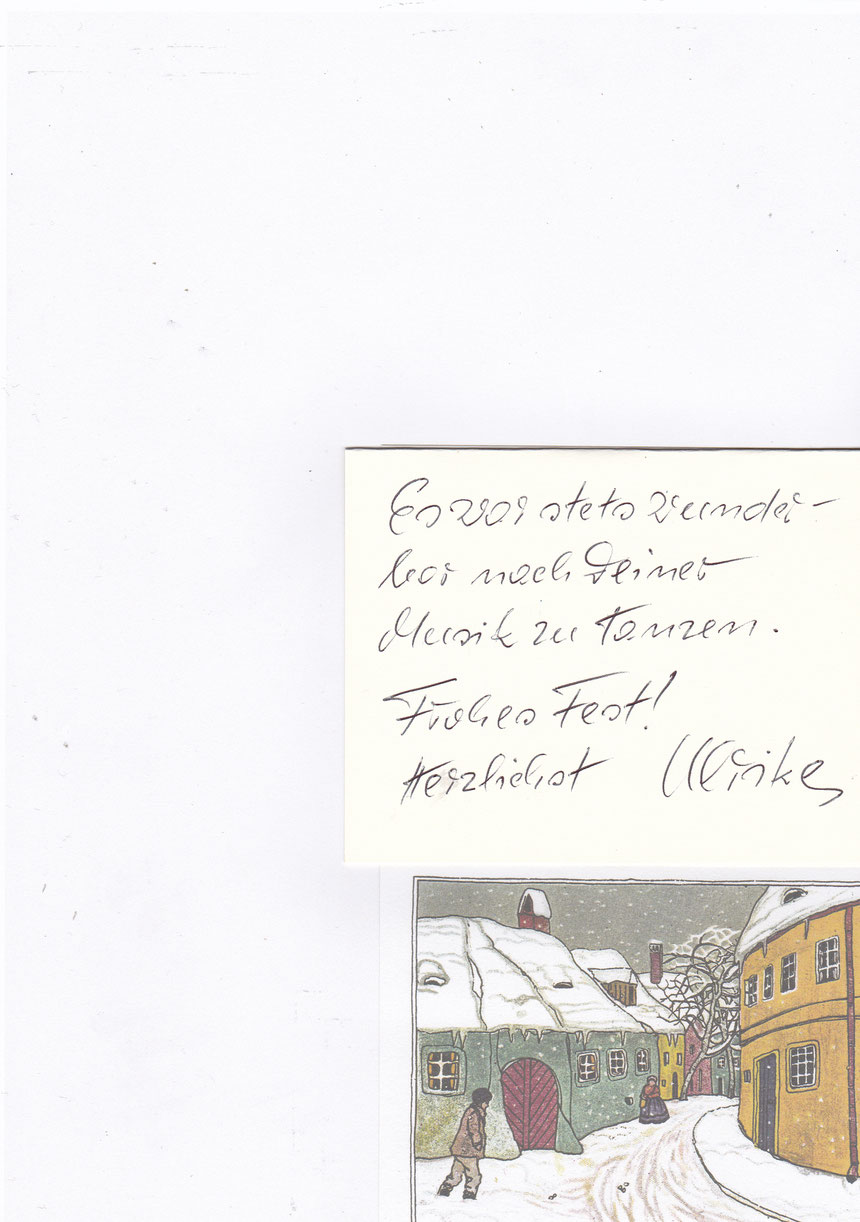 Es war stets wunder-
bar nach Deiner
Musik zu tanzen.
Frohes Fest!
Herzlichst Ulrike